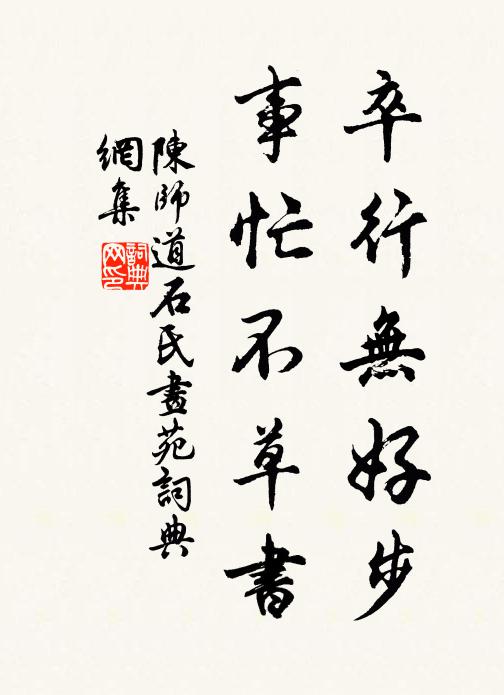 卒行無好步
事忙不草書
陳師道石氏畫苑詞典
網集
詞典
网印